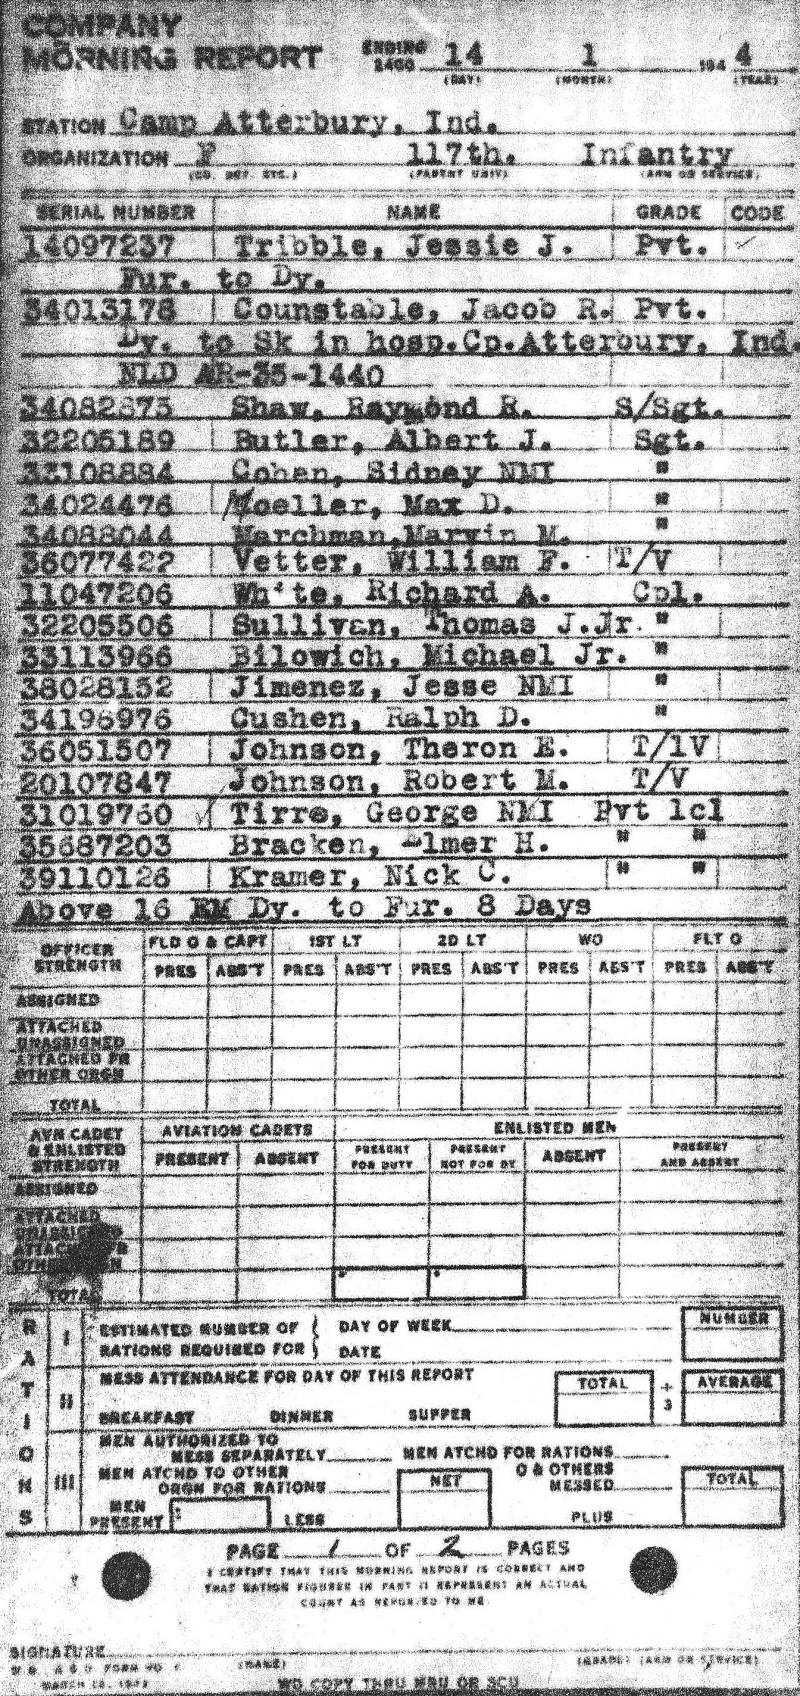 COMPANY
MORNING REPORT ENDING 2400 14 1 194 4
(DAY) (MONTH) (YEAR)
STATION Camp Atterbury, Ind.
ORGANIZATION F 117th. Infantry
(CO. DET. ETC.) (PARENT UNIT) (ARM OR SERVICE)
SERIAL NUMBER NAME GRADE CODE
14097237 Tribble, Jessie J. Pvt. ✓
Fur. to Dy.
34013178 Counstable, Jacob R. Pvt.
Dy. to Sk in hosp.Cp.Atterbury, Ind.
NLD AR-35-1440
34082873 Shaw, Raymond R. S/Sgt.
32205189 Butler, Albert J. Sgt.
33108884 Cohen, Sidney NMI "
34024476 Moeller, Max D. "
34088044 Marchman,Marvin M. "
36077422 Vetter, William F. T/V
11047206 White, Richard A. Cpl.
32205506 Sullivan, Thomas J.Jr. "
33113966 Bilowich, Michael Jr. "
38028152 Jimenez, Jesse NMI "
34196976 Cushen, Ralph D. "
36051507 Johnson, Theron E. T/lV
20107847 Johnson, Robert M. T/V
31019760 ✓ Tirre, George NMI Pvt lcl
35687203 Bracken, Elmer H. " "
39110126 Kramer, Nick C. " "
Above 16 EM Dy. to Fur. 8 Days
OFFICER STRENGTH FLD O & CAPT 1ST LT 2D LT WO FLT O
PRES ABS'T PRES ABS'T PRES ABS'T PRES ABS'T PRES ABS'T
ASSIGNED
ATTACHED UNASSIGNED
ATTACHED FR OTHER ORGN
TOTAL
AVN CADET & ENLISTED STRENGTH AVIATION CADETS ENLISTED MEN
PRESENT ABSENT PRESENT FOR DUTY PRESENT NOT FOR DY ABSENT PRESENT AND ABSENT
ASSIGNED
ATTACHED UNASSIGNED
ATTACHED FR OTHER ORGN
TOTAL
RATIONS
I ESTIMATED NUMBER OF RATIONS REQUIRED FOR DAY OF WEEK NUMBER
DATE
II MESS ATTENDANCE FOR DAY OF THIS REPORT TOTAL ÷ 3 AVERAGE
BREAKFAST DINNER SUPPER
III MEN AUTHORIZED TO MESS SEPARATELY MEN ATCHD FOR RATIONS
MEN ATCHD TO OTHER ORGN FOR RATIONS NET O & OTHERS MESSED TOTAL
MEN PRESENT LESS PLUS
PAGE 1 OF 2 PAGES
I CERTIFY THAT THIS MORNING REPORT IS CORRECT AND
THAT RATION FIGURES IN PART II REPRESENT AN ACTUAL
COUNT AS REPORTED TO ME.
SIGNATURE
(NAME) (GRADE) (ARM OR SERVICE)
W D , A G O FORM NO 1
WD COPY THRU MRU OR SCU